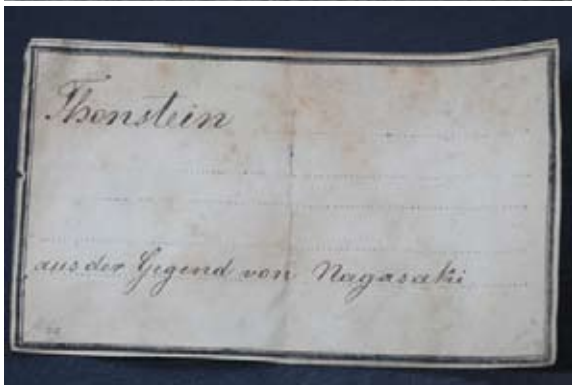 Thonstein
aus der Gegend von Nagasaki